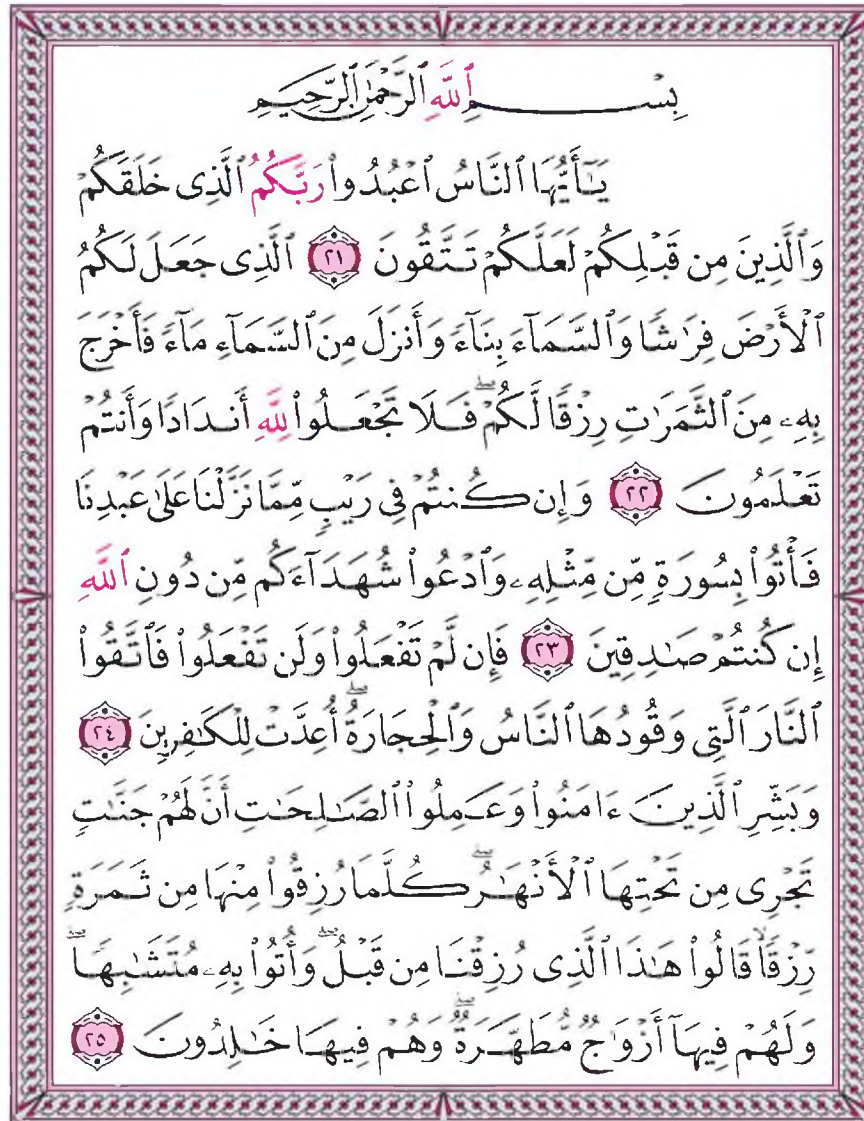 بِسْمِ ٱللَّهِ ٱلرَّحْمَٰنِ ٱلرَّحِيمِ
يَٰٓأَيُّهَا ٱلنَّاسُ ٱعْبُدُوا۟ رَبَّكُمُ ٱلَّذِى خَلَقَكُمْ
وَٱلَّذِينَ مِن قَبْلِكُمْ لَعَلَّكُمْ تَتَّقُونَ ٢١ ٱلَّذِى جَعَلَ لَكُمُ
ٱلْأَرْضَ فِرَٰشًا وَٱلسَّمَآءَ بِنَآءً وَأَنزَلَ مِنَ ٱلسَّمَآءِ مَآءً فَأَخْرَجَ
بِهِۦ مِنَ ٱلثَّمَرَٰتِ رِزْقًا لَّكُمْ ۖ فَلَا تَجْعَلُوا۟ لِلَّهِ أَندَادًا وَأَنتُمْ
تَعْلَمُونَ ٢٢ وَإِن كُنتُمْ فِى رَيْبٍ مِّمَّا نَزَّلْنَا عَلَىٰ عَبْدِنَا
فَأْتُوا۟ بِسُورَةٍ مِّن مِّثْلِهِۦ وَٱدْعُوا۟ شُهَدَآءَكُم مِّن دُونِ ٱللَّهِ
إِن كُنتُمْ صَٰدِقِينَ ٢٣ فَإِن لَّمْ تَفْعَلُوا۟ وَلَن تَفْعَلُوا۟ فَٱتَّقُوا۟
ٱلنَّارَ ٱلَّتِى وَقُودُهَا ٱلنَّاسُ وَٱلْحِجَارَةُ ۖ أُعِدَّتْ لِلْكَٰفِرِينَ ٢٤
وَبَشِّرِ ٱلَّذِينَ ءَامَنُوا۟ وَعَمِلُوا۟ ٱلصَّٰلِحَٰتِ أَنَّ لَهُمْ جَنَّٰتٍ
تَجْرِى مِن تَحْتِهَا ٱلْأَنْهَٰرُ ۖ كُلَّمَا رُزِقُوا۟ مِنْهَا مِن ثَمَرَةٍ
رِّزْقًا ۙ قَالُوا۟ هَٰذَا ٱلَّذِى رُزِقْنَا مِن قَبْلُ ۖ وَأُتُوا۟ بِهِۦ مُتَشَٰبِهًا ۖ
وَلَهُمْ فِيهَآ أَزْوَٰجٌ مُّطَهَّرَةٌ ۖ وَهُمْ فِيهَا خَٰلِدُونَ ٢٥